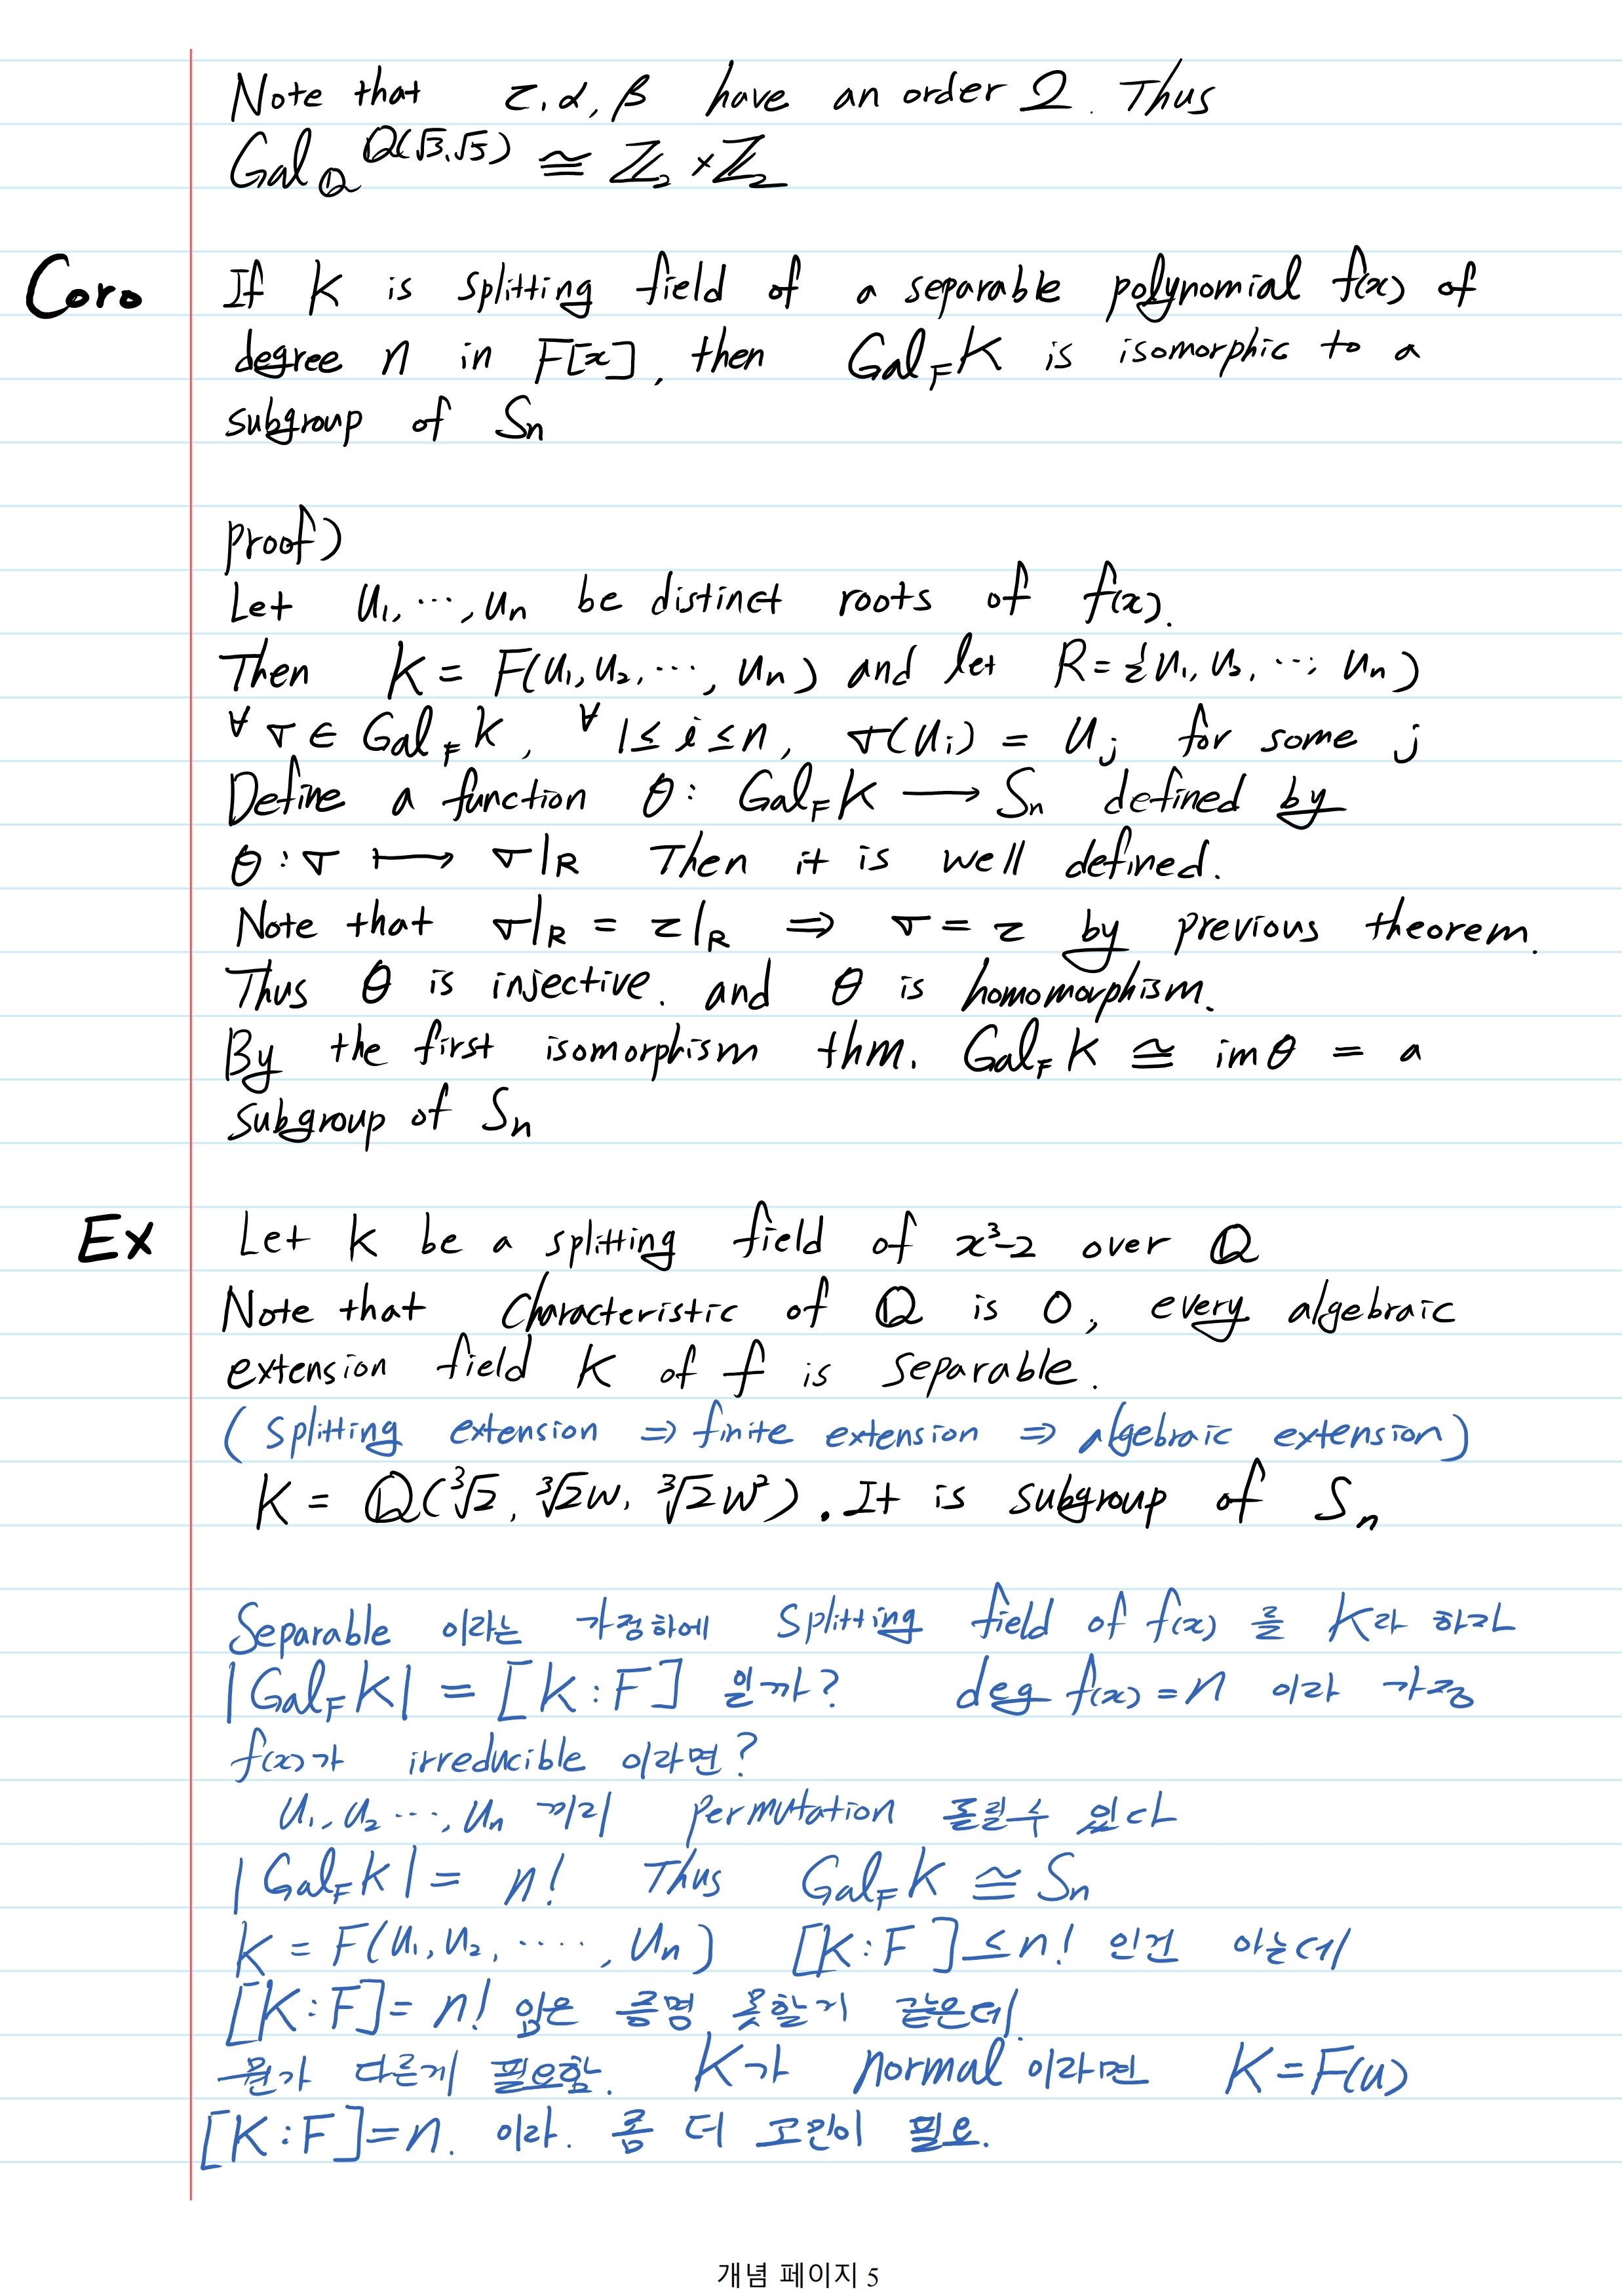 Note that τ, α, β have an order 2. Thus
Gal_Q Q(√3, √5) ≅ ℤ₂ × ℤ₂
Coro If K is splitting field of a separable polynomial f(x) of
degree n in F[x], then Gal_F K is isomorphic to a
subgroup of Sn
proof)
Let u₁, ⋯, un be distinct roots of f(x).
Then K = F(u₁, u₂, ⋯, un) and let R = {u₁, u₂, ⋯, un)
∀σ ∈ Gal_F K, ∀1 ≤ i ≤ n, σ(ui) = uj for some j
Define a function θ: Gal_F K ⟶ Sn defined by
θ : σ ⟼ σ|R Then it is well defined.
Note that σ|R = τ|R ⇒ σ = τ by previous theorem.
Thus θ is injective. and θ is homomorphism.
By the first isomorphism thm. Gal_F K ≅ im θ = a
subgroup of Sn
Ex Let K be a splitting field of x³-2 over Q
Note that characteristic of Q is 0, every algebraic
extension field K of f is separable.
( splitting extension ⇒ finite extension ⇒ algebraic extension)
K = Q(³√2, ³√2w, ³√2w²). It is subgroup of Sn
Separable 이라는 가정하에 splitting field of f(x) 를 K라 하자
|Gal_F K| = [K : F] 일까? deg f(x) = n 이라 가정
f(x)가 irreducible 이라면?
u₁, u₂ ⋯, un 끼리 permutation 돌릴수 있다
|Gal_F K| = n! Thus Gal_F K ≅ Sn
K = F(u₁, u₂, ⋯⋯, un) [K : F] ≤ n! 인건 아는데
[K : F] = n! 임은 증명 못할거 같은데.
뭔가 다른게 필요함. K가 normal 이라면 K = F(u)
[K : F] = n. 이라. 좀 더 고민이 필요.
개념 페이지 5